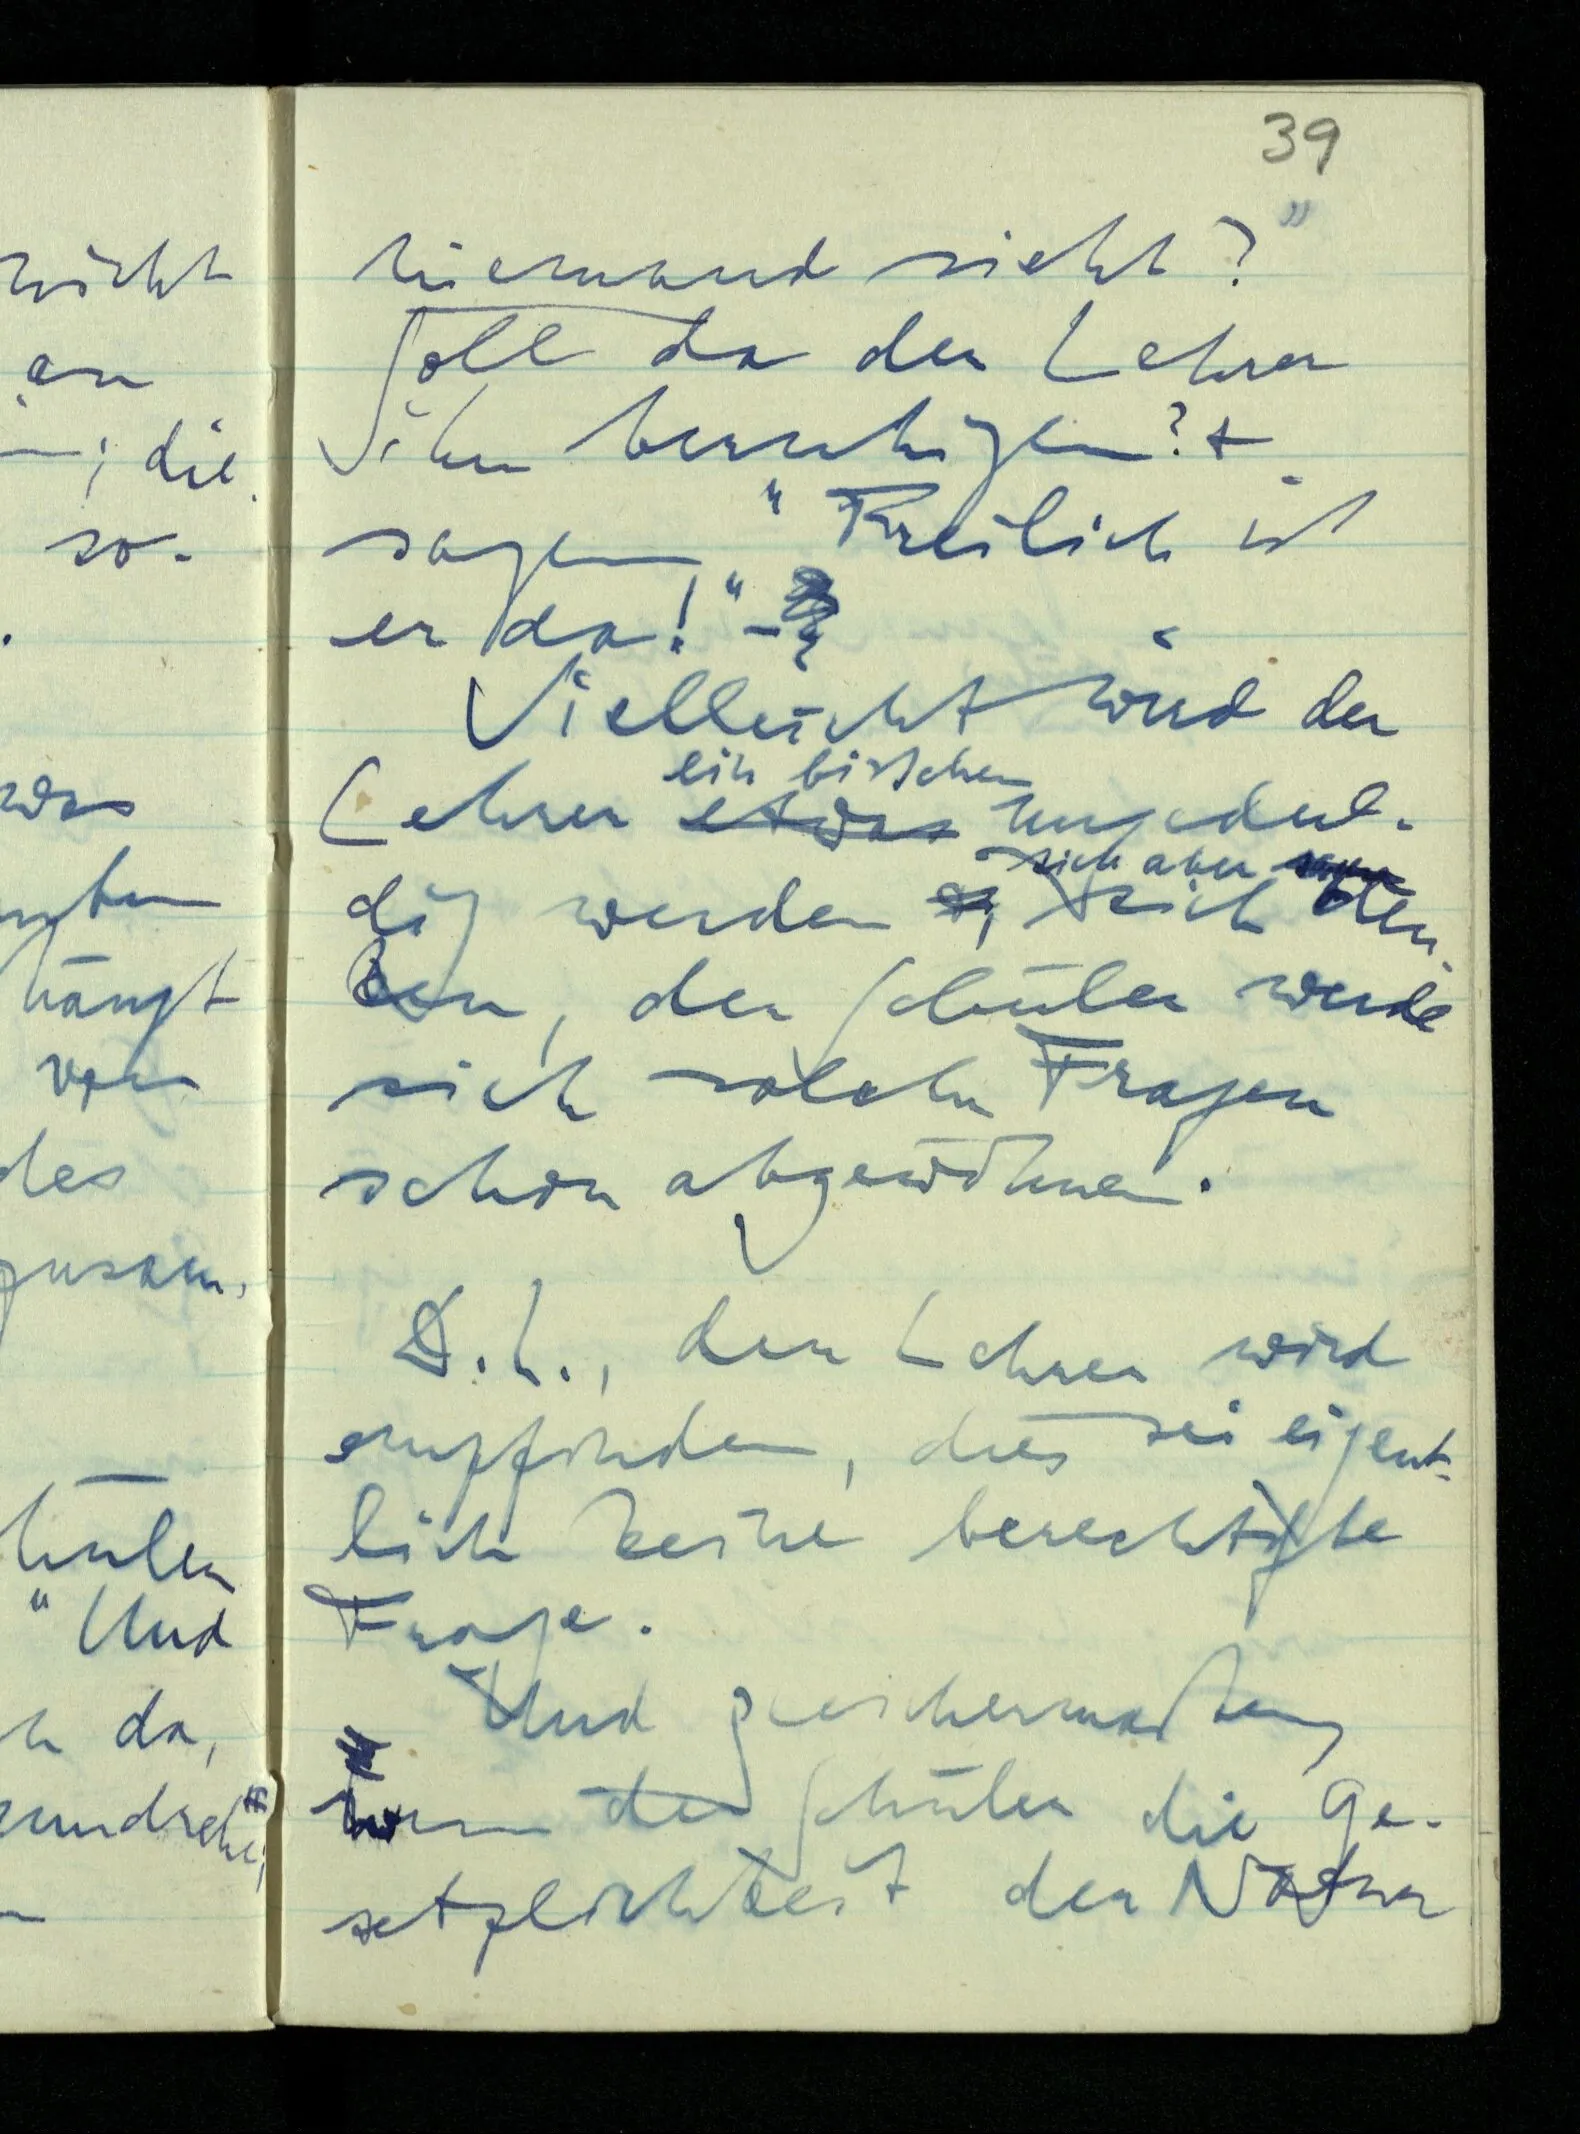 39
nicht
an
; die
so-
was
hängt
von
des
zusam-
"Und
da,
niemand sieht?"
Soll da der Lehrer
ihn beruhigen? +
sagen "Freilich ist
er da!" –
Vielleicht wird der
ein bisschen
Lehrer etwas ungedul-
sich aber
dig werden, sich den-
ken, der Schüler werde
sich solche Fragen
schon abgewöhnen.
D.h., der Lehrer wird
empfinden, dies sei eigent-
lich keine berechtigte
Frage.
Und gleichermaßen,
wenn der Schüler die Ge-
setzlichkeit der Natur